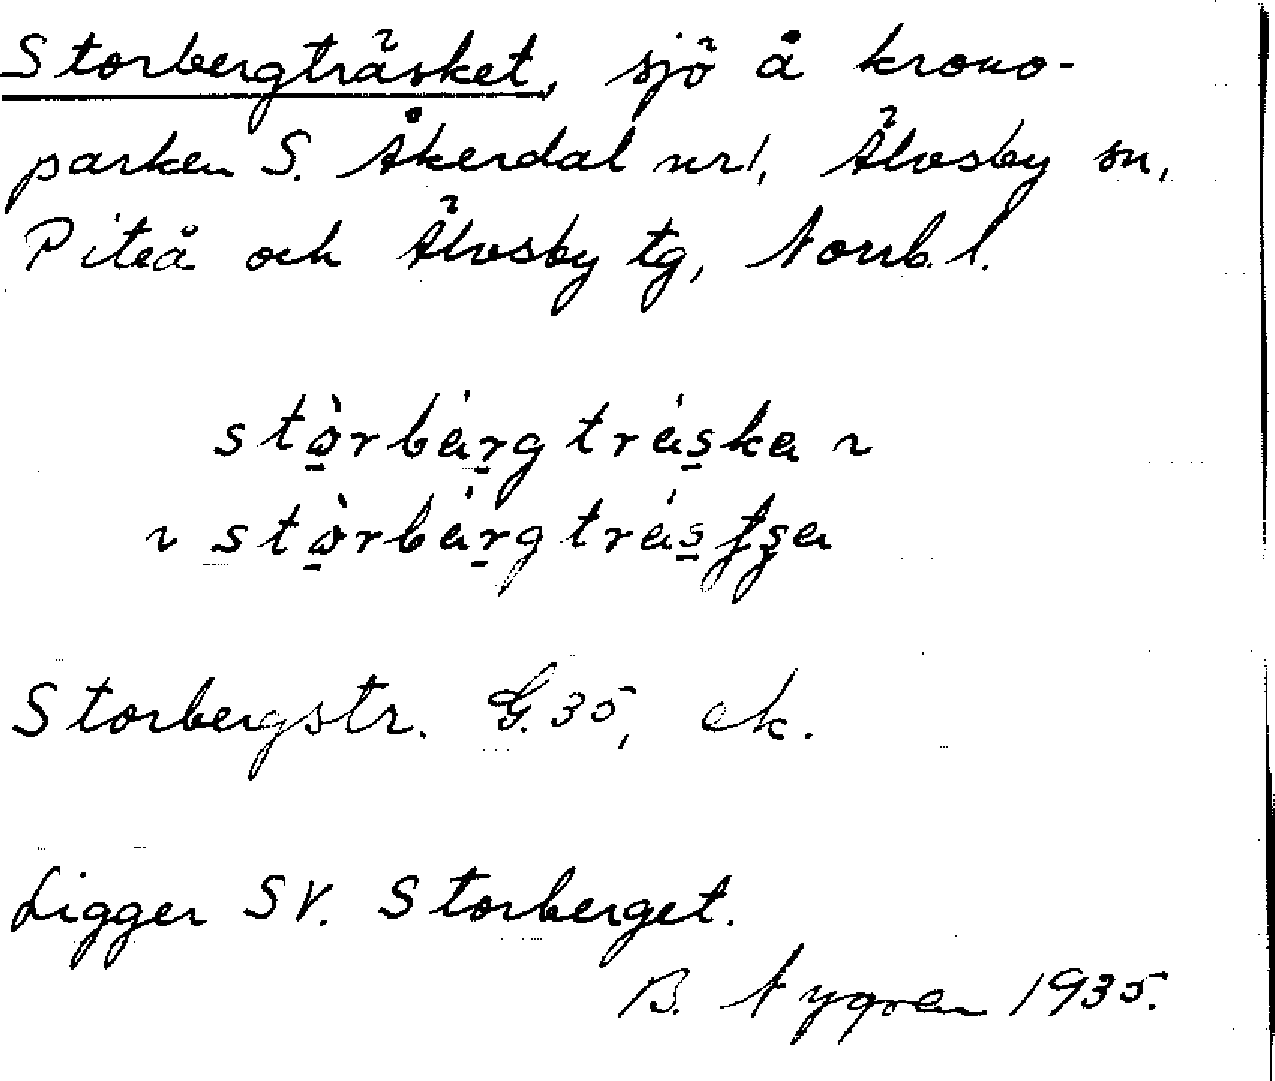 Storbergträsket, sjö å krono-
parken S. Åkerdal nr 1, Älvsby sn,
Piteå och Älvsby tg, Norrb. l.
stòrbárgtráska ~
~ stòrbárgtrás
Storbergstr. G. 35, ek.
Ligger SV. Storberget.
B. Nygren 1935.